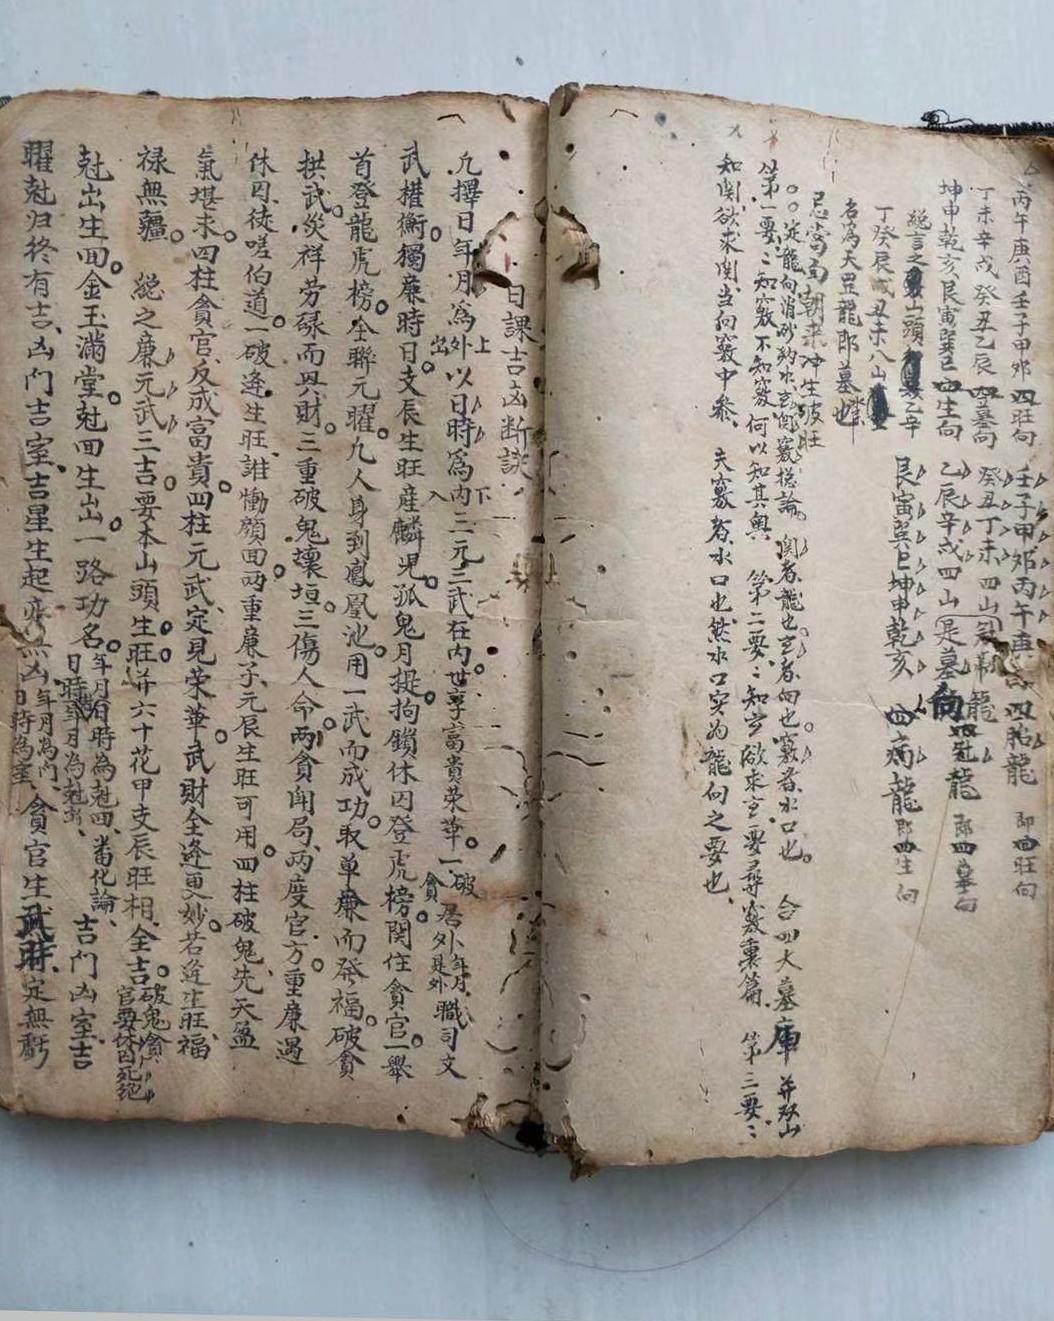 丙午庚酉壬子甲卯四旺向 壬子甲卯丙午庚 四胎龍 即四旺向
丁未辛戌癸丑乙辰四墓向 癸丑丁未四山 龍
坤申乾亥艮寅巽巳四生向 乙辰辛戌四山是墓向 四冠龍 即四墓向
總言之 山頭 乙辛 艮寅巽巳坤申乾亥 四病龍 即四生向
丁癸辰戌丑未八山
名為天罡龍即墓也
忌當面朝来冲生破旺
淀龍向消砂納水玄関竅捴論 関者龍也玄者向也竅者水口也 合四大墓庫并双山
第一要〻知竅不知竅何以知其奥 第二要〻知玄欲求玄要尋竅裏篇 第三要〻
知関欲求関当向竅中参 夫竅者水口也然水口实为龍向之要也
日課吉凶断訣
凢擇日年月為外以日時為内三元三武在内世享富貴荣華一破貪居外年月是外職司文
上出
下入
武權衡獨廉時日支辰生旺産麟児孤鬼月提拘鎖休囚登虎榜関住貪官一舉
首登龍虎榜全聯元曜凢人身到鳳凰池用一武而成功取单廉而発福破貪
拱武災祥劳碌而興財三重破鬼壞垣三傷人命两貪閗局两度官方重廉遇
休囚徒嗟伯道一破逢生旺誰慟顔回两重廉子元辰生旺可用四柱破鬼先天盈
氣堪求四柱貪官反成富貴四柱元武定見荣華武財全逢更妙若逢生旺福
禄無疆 縂之廉元武三吉要本山頭生旺并六十花甲支辰旺相全吉破鬼貪官要休囚死绝
尅出生回金玉滿堂尅回生出一路功名年月日時為尅回日時年月為尅出畨化論 吉门凶室吉
曜尅归终有吉凶门吉室吉星生起亦無凶年月為门日時為室貪官生武財定無虧